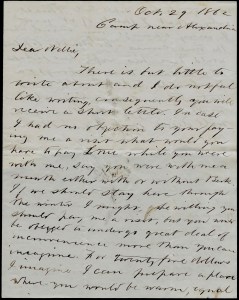 Oct. 29. 1862
Camp near Alexandria
Dear Nellie,
There is but little to
write about and I do not feel
like writing consequently you will
receive a short letter. In case
I had no objection to your pay-
ing me a visit what would you
have to pay me while you were
with me, say you were with me a
month either with or without
If we should stay here through
the winter I might, be willing you
should pay me a visit, but you would
be obliged to undergo great deal of
inconvenience more than you can
imagine. For twenty five dollars
I imagine I can prepare a place
where you would be warm, equal